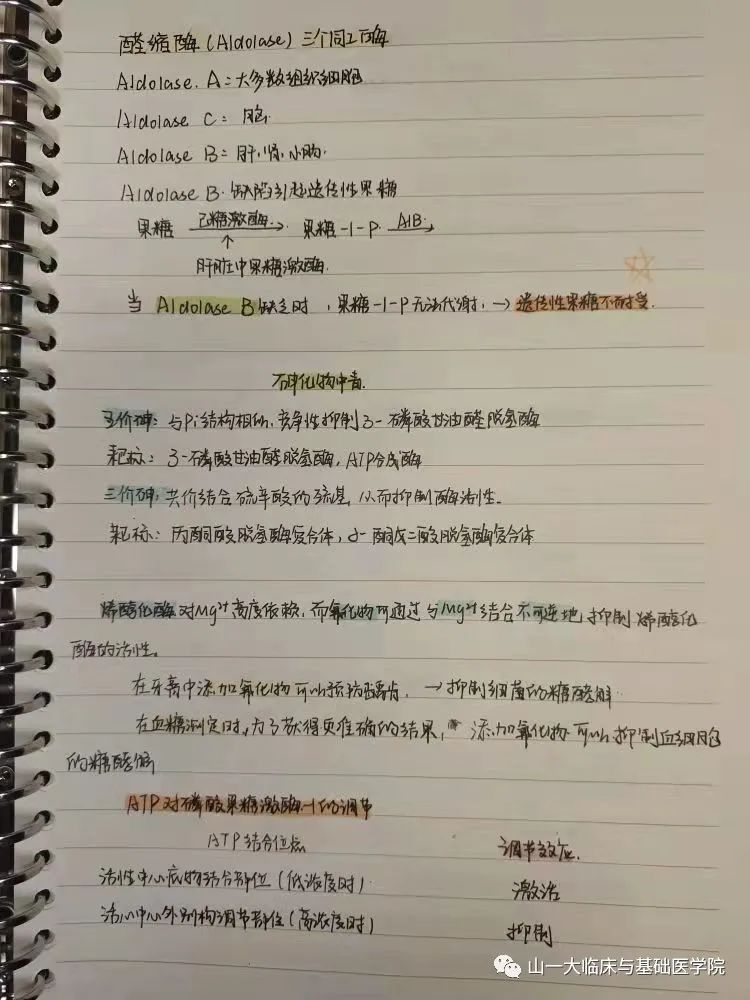 醛缩酶(Aldolase) 三个同工酶
Aldolase. A: 大多数组织细胞
Aldolase C: 脑.
Aldolase B: 肝,肾,小肠.
Aldolase B.缺陷引起遗传性果糖
果糖 己糖激酶 → 果糖-1-P. AlB. →
↑
肝脏中果糖激酶.
当 Aldolase B缺乏时,果糖-1-P无法代谢, → 遗传性果糖不耐受.
砷化物中毒.
五价砷: 与Pi结构相似,竞争性抑制3-磷酸甘油醛脱氢酶
靶标: 3-磷酸甘油醛脱氢酶, ATP合成酶
三价砷: 共价结合硫辛酸的巯基,从而抑制酶活性.
靶标: 丙酮酸脱氢酶复合体, α-酮戊二酸脱氢酶复合体
烯醇化酶对Mg²⁺高度依赖,而氟化物可通过与Mg²⁺结合不可逆地抑制烯醇化
酶的活性。
在牙膏中添加氟化物可以预防龋齿, → 抑制细菌的糖酵解.
在血糖测定时,为了获得更准确的结果, 添加氟化物可以抑制血细胞
的糖酵解
ATP对磷酸果糖激酶-1的调节
ATP结合位点 调节效应.
活性中心底物结合部位(低浓度时) 激活
活心中心外别构调节部位(高浓度时) 抑制
山一大临床与基础医学院